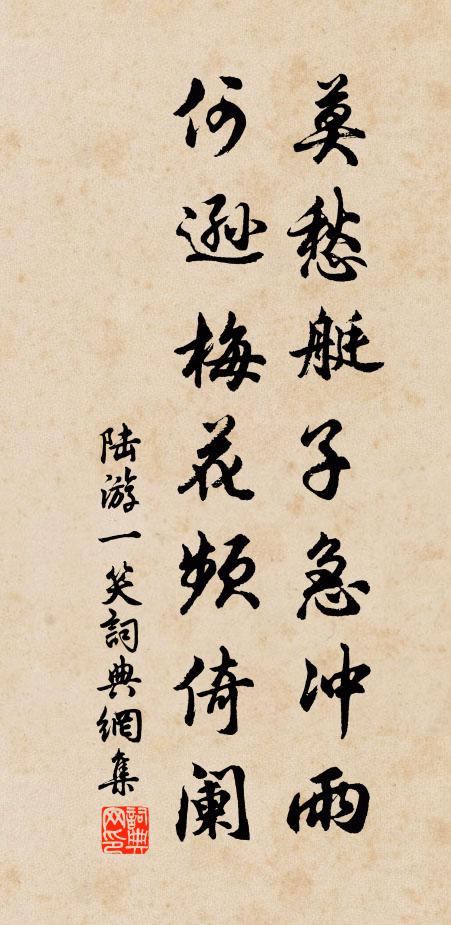 莫愁艇子急冲雨
何逊梅花频倚阑
陆游一笑詞典網集
詞典
网印